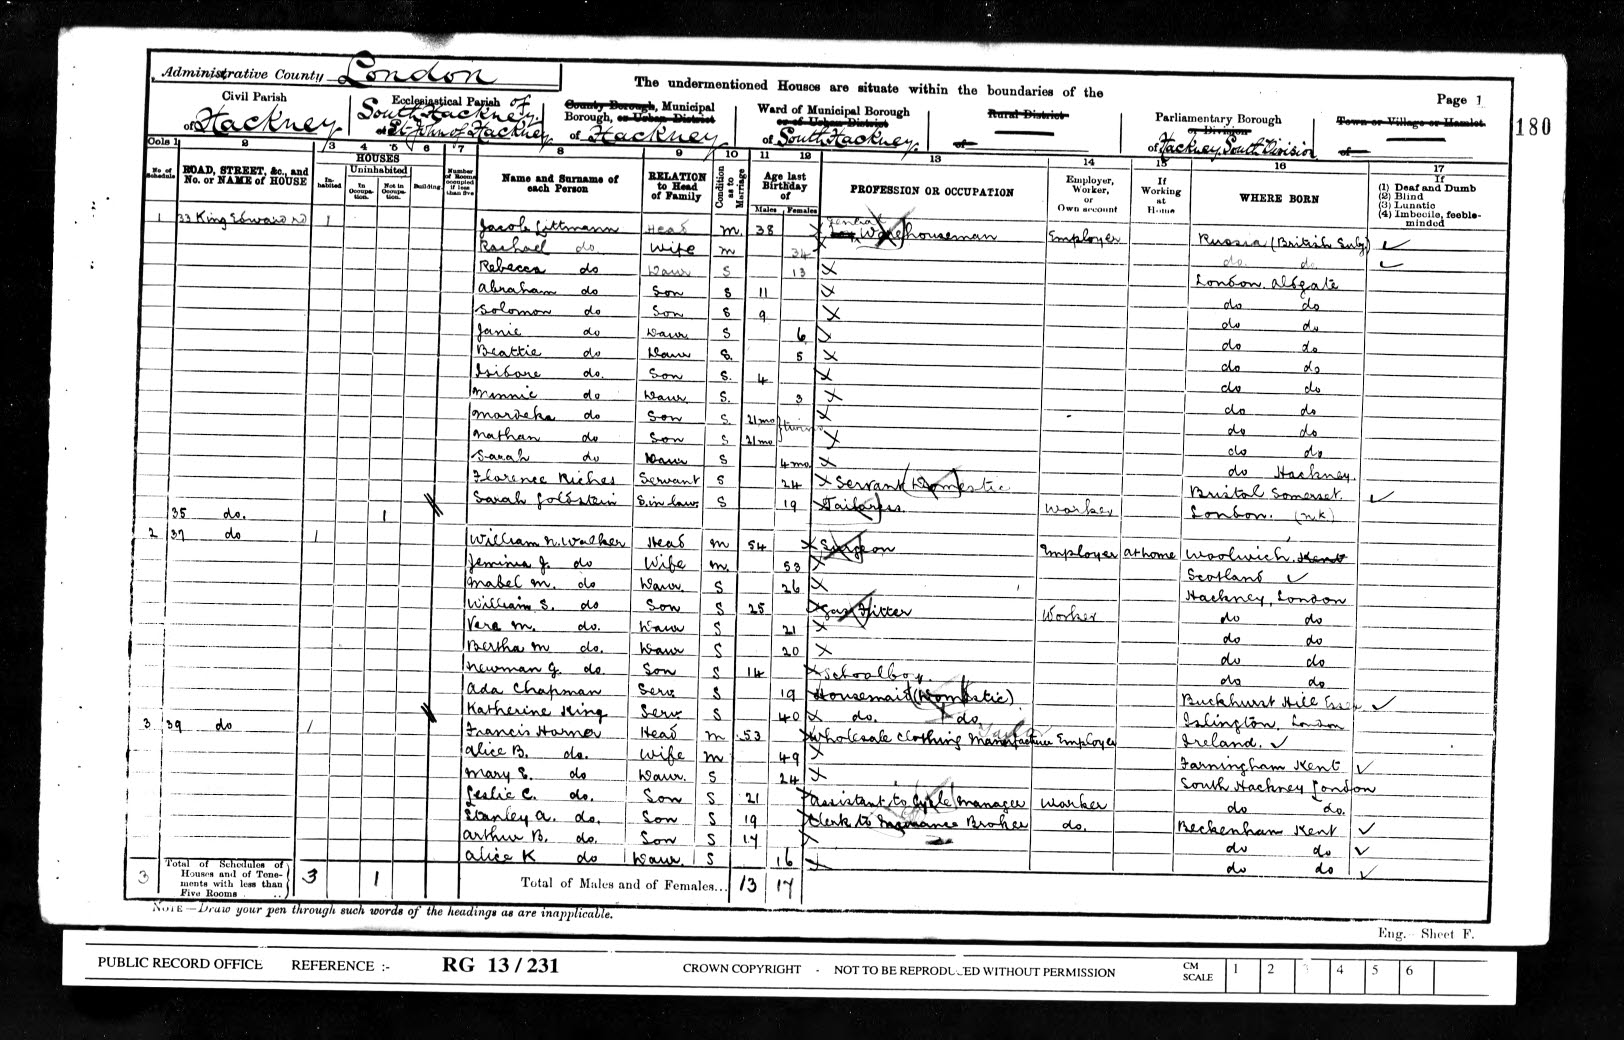 Administrative County London
The undermentioned Houses are situate within the boundaries of the
Page 1
180
Civil Parish
of Hackney
Ecclesiastical Parish of
South Hackney.
at St John of Hackney
County Borough, Municipal
Borough, or Urban District
of Hackney
Ward of Municipal Borough
or of Urban District
of South Hackney.
Rural District
of
Parliamentary Borough
or Division
of Hackney South Division
Town or Village or Hamlet
of
Cols 1 2 3 4 5 6 7 8 9 10 11 12 13 14 15 16 17
No. of Schedule
ROAD, STREET, &c., and No. or NAME of HOUSE
HOUSES
Inhabited
Uninhabited
In Occupation.
Not in Occupation.
Building.
Number of Rooms occupied if less than five
Name and Surname of each Person
RELATION to Head of Family
Condition as to Marriage
Age last Birthday of
Males Females
PROFESSION OR OCCUPATION
Employer, Worker, or Own account
If Working at Home
WHERE BORN
If
(1) Deaf and Dumb
(2) Blind
(3) Lunatic
(4) Imbecile, feeble-minded
1 33 King Edward Rd 1 Jacob Littmann Head m. 38 General Warehouseman Employer Russia (British Subj.)
Rachael do Wife m 34 do do
Rebecca do Daur S 13 London. Aldgate
Abraham do Son S 11 do do
Solomon do Son S 9 do do
Janie do Daur S 6 do do
Beattie do Daur S. 5 do do
Isidore do. Son S. 4 do do
Minnie do Daur. S. 3 do do
Mardeka do Son S. 21 mo twins do do
Nathan do Son S 21 mo do do
Sarah do Daur S 4 mo. do Hackney.
Florence Riches Servant S 24 Servant (Domestic) Bristol Somerset.
Sarah Goldstein S. in law. S 19 Tailoress. Worker London. (n.k)
35 do. 1
2 37 do 1 William N. Walker Head m 54 Surgeon Employer at home Woolwich, Kent
Jemima J. do Wife m. 53 Scotland
Mabel M. do Daur. S 26 Hackney, London
William S. do Son S 25 Gas Fitter Worker do do
Vera M. do. Daur S 21 do do
Bertha M do Daur S 20 do do
Newman G. do. Son S 14 Schoolboy. do do
Ada Chapman Serv. S 19 Housemaid (Domestic). Buckhurst Hill Essex
Katherine King Serv S 40 do. do Islington, London
3 39 do 1 Francis Harner Head m 53 Wholesale Clothing Manufacture Employer Ireland.
Alice B. do. Wife m 49 Farningham Kent
Mary E. do Daur. S 24 South Hackney London
Leslie C. do. Son S 21 Assistant to Cycle Manager Worker do do.
Stanley A. do. Son S 19 Clerk to Insurance Broker do. Beckenham Kent
Arthur B. do. Son S 17 do do
Alice K do Daur. S 16 do do
3 Total of Schedules of Houses and of Tenements with less than Five Rooms 3 1 Total of Males and of Females... 13 17
NOTE—Draw your pen through such words of the headings as are inapplicable.
Eng.—Sheet F.
PUBLIC RECORD OFFICE REFERENCE :- RG 13/231 CROWN COPYRIGHT - NOT TO BE REPRODUCED WITHOUT PERMISSION CM SCALE 1 2 3 4 5 6